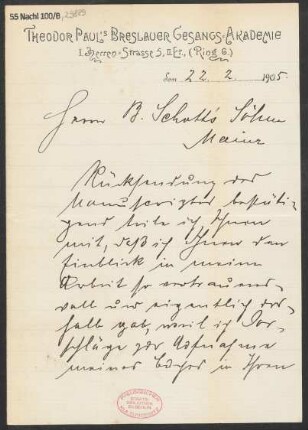 55 Nachl 100/B, 
THEODOR PAUL'S BRESLAUER GESANGS-AKADEMIE
I. Herren-Strasse 5, II Et., (Ring 6.)
den 22. 2. 1905
Herrn B. Schott's Söhne
Mainz
Rücksendung des
Manuscriptes bestäti-
gend teile ich Ihnen
mit, daß ich Ihnen den
Einblick in meine
Arbeit so vertrauens-
voll und eigentlich des-
halb gab, weil ich Vor-
schläge zur Aufnahme
meines Buches in Ihren